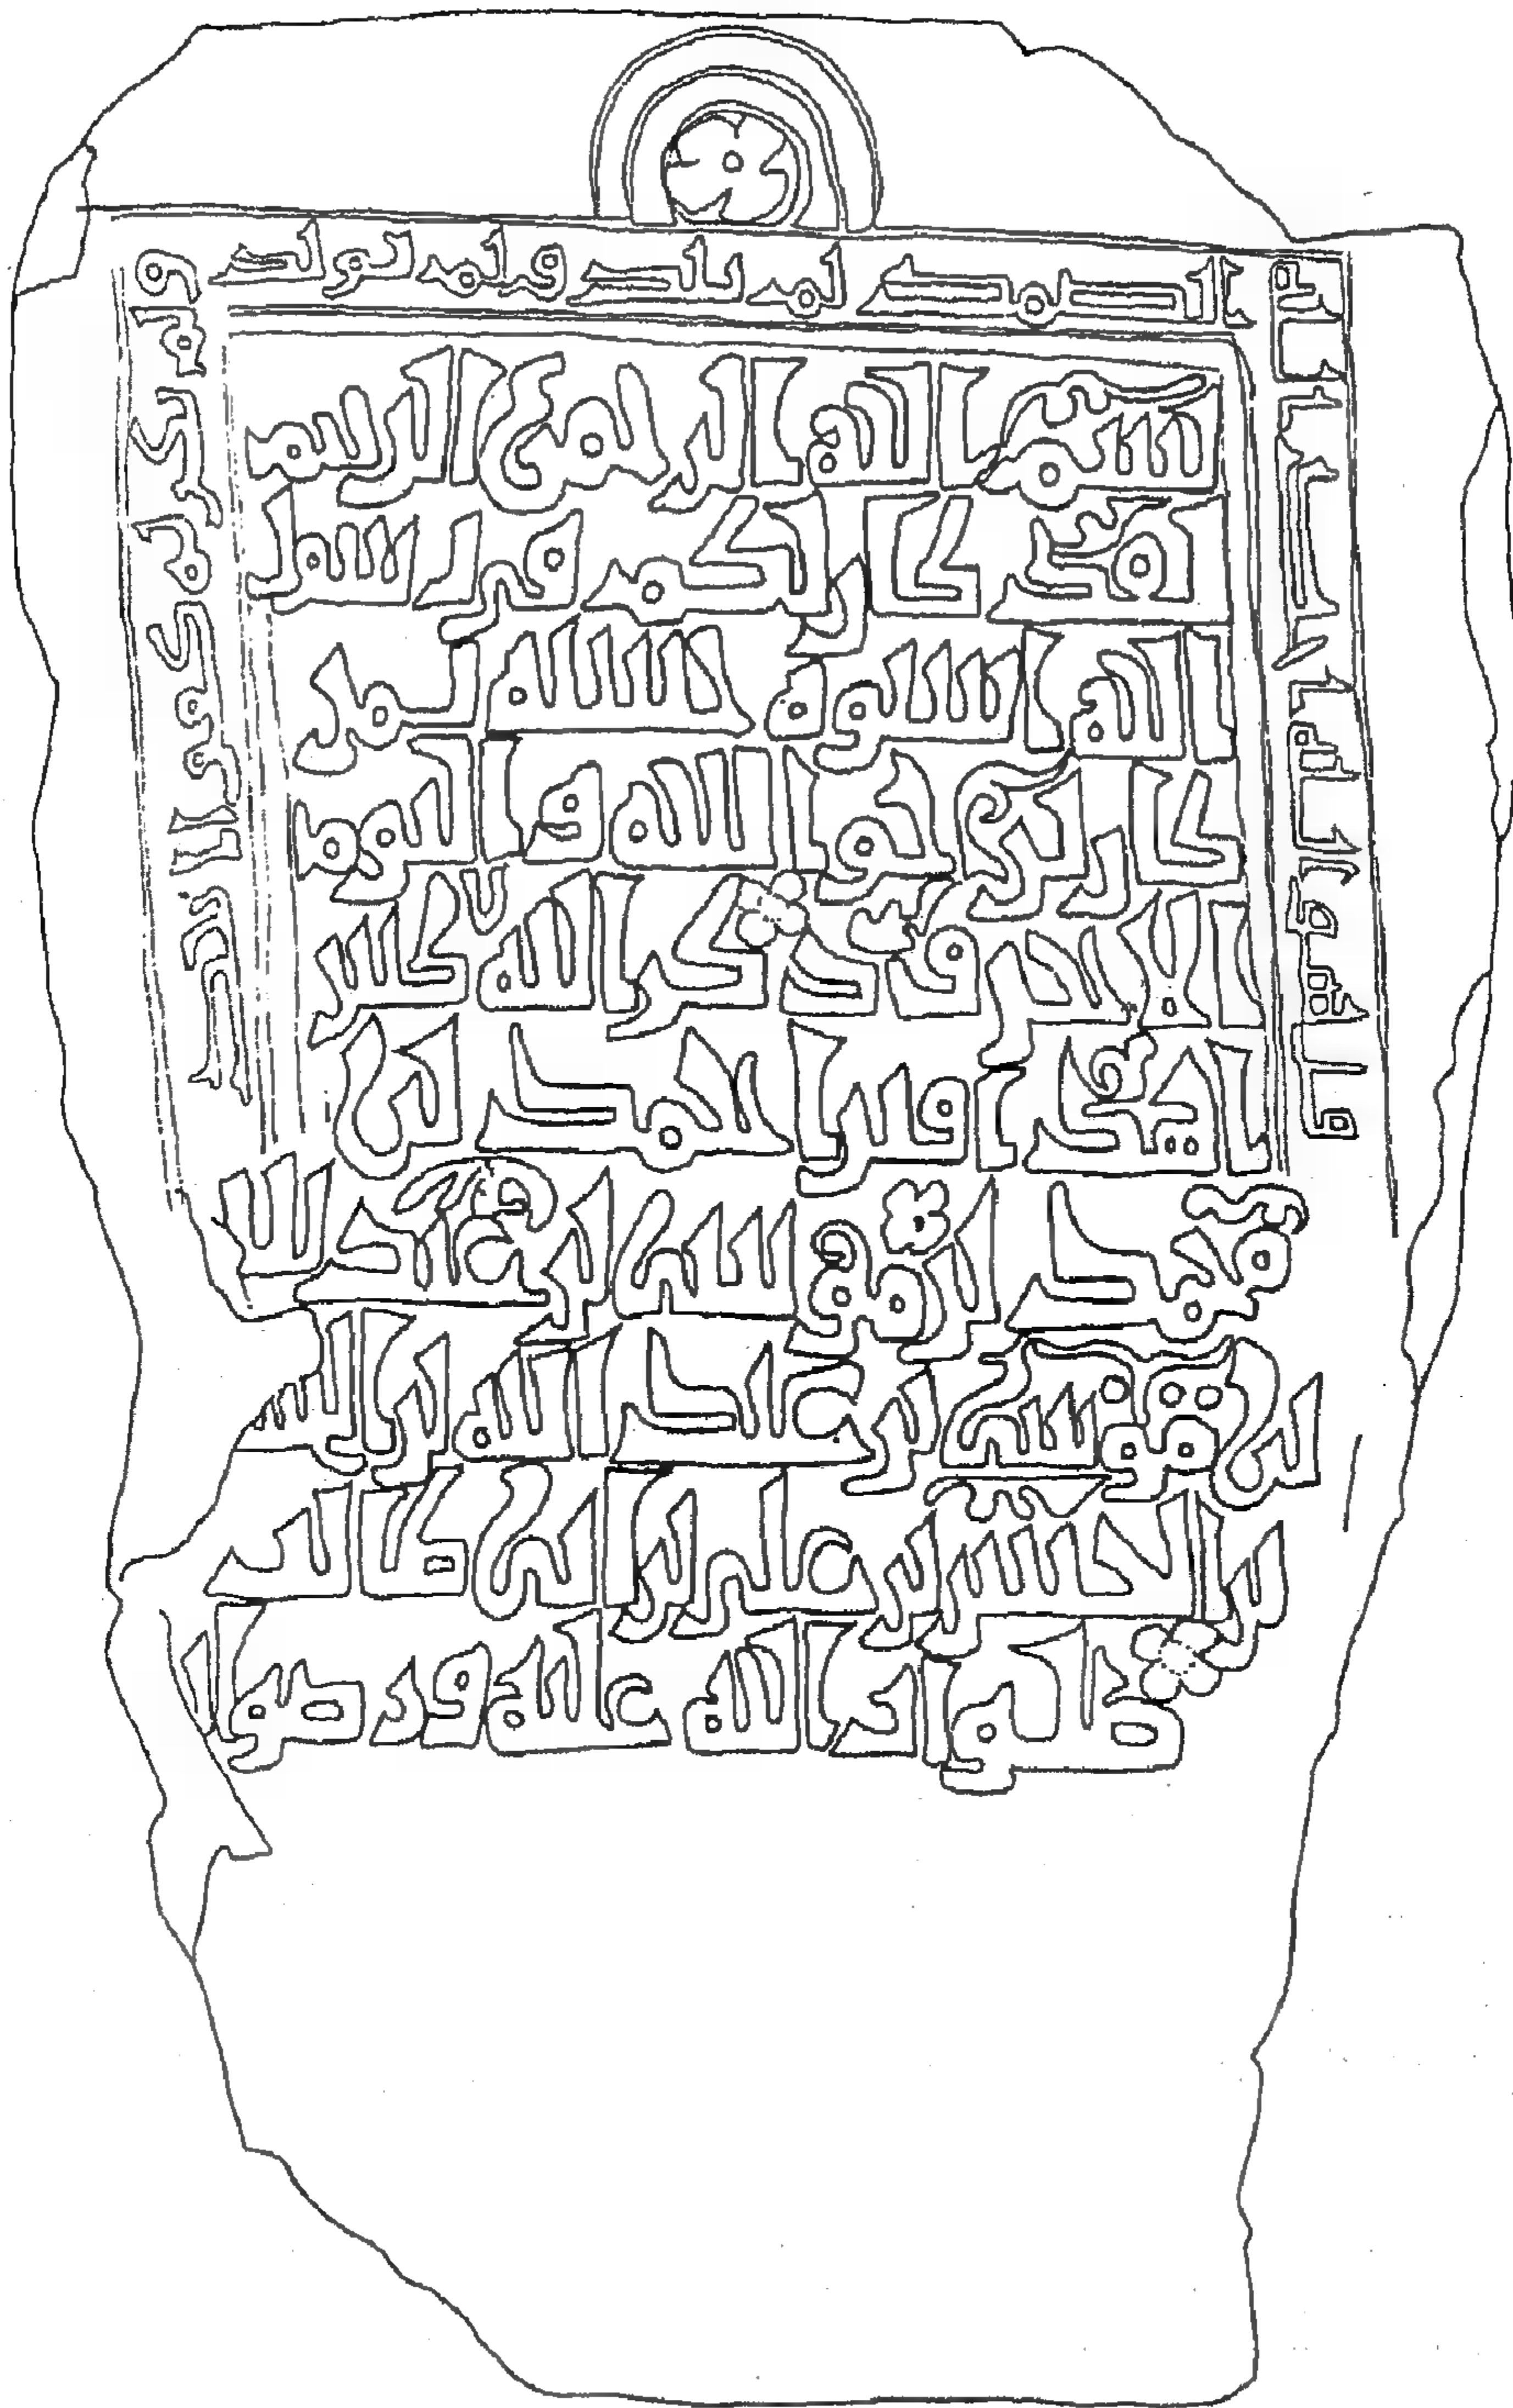 الصمد لم يلد ولم يولد
ولم يكن له كفوا احد
بسم الله الرحمن الرحيم
لقد كان لكم في رسول
الله اسوة حسنة لمن
كان يرجو الله واليوم
الاخر وذكر الله كثير
ا هذا قبر احمد بن
محمد بن موسى بن عبد الله
بن موسى بن عبد الله بن الحسن
بن الحسن بن علي بن ابي طالب
صلوات الله عليه ورضوا